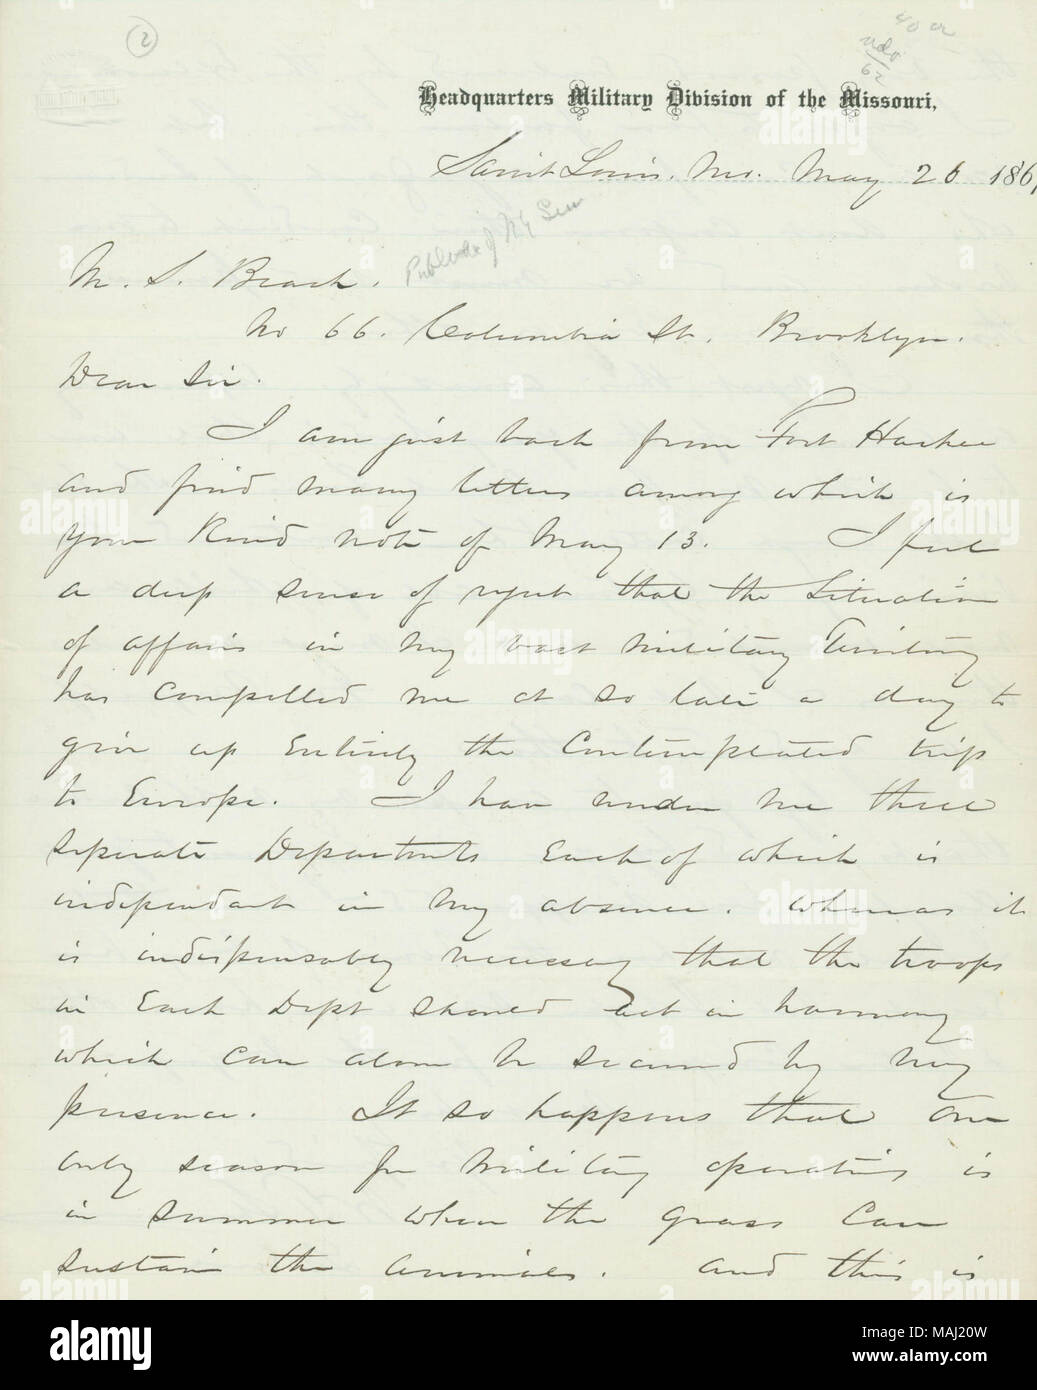 2
Headquarters Military Division of the Missouri,
Saint Louis, Mo. May 26 186
M. S. Beach.
No 66. Columbia St. Brooklyn.
Dear Sir.
I am just back from Fort Harker
and find many letters among which is
your Kind note of May 13. I feel
a deep sense of regret that the Situation
of affairs in my vast military Territory
has compelled me at so late a day to
give up Entirely the Contemplated trip
to Europe. I have under me three
seperate Departmts Each of which is
independent in my absence. Whereas it
is indispensably necessary that the troops
in Each Dept should act in harmony
which can alone be secured by my
presence. It so happens that our
only season for military operations is
in summer when the grass Can
sustain the animals. and this is
alamy
Image ID: MAJ20W
www.alamy.com